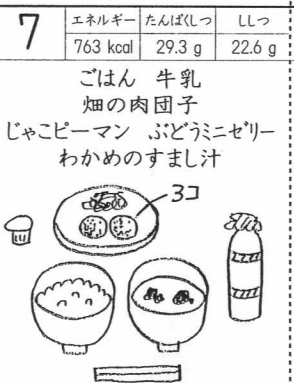 7
エネルギー たんぱくしつ ししつ
763 kcal 29.3 g 22.6 g
ごはん 牛乳
畑の肉団子
じゃこピーマン ぶどうミニゼリー
わかめのすまし汁
3コ